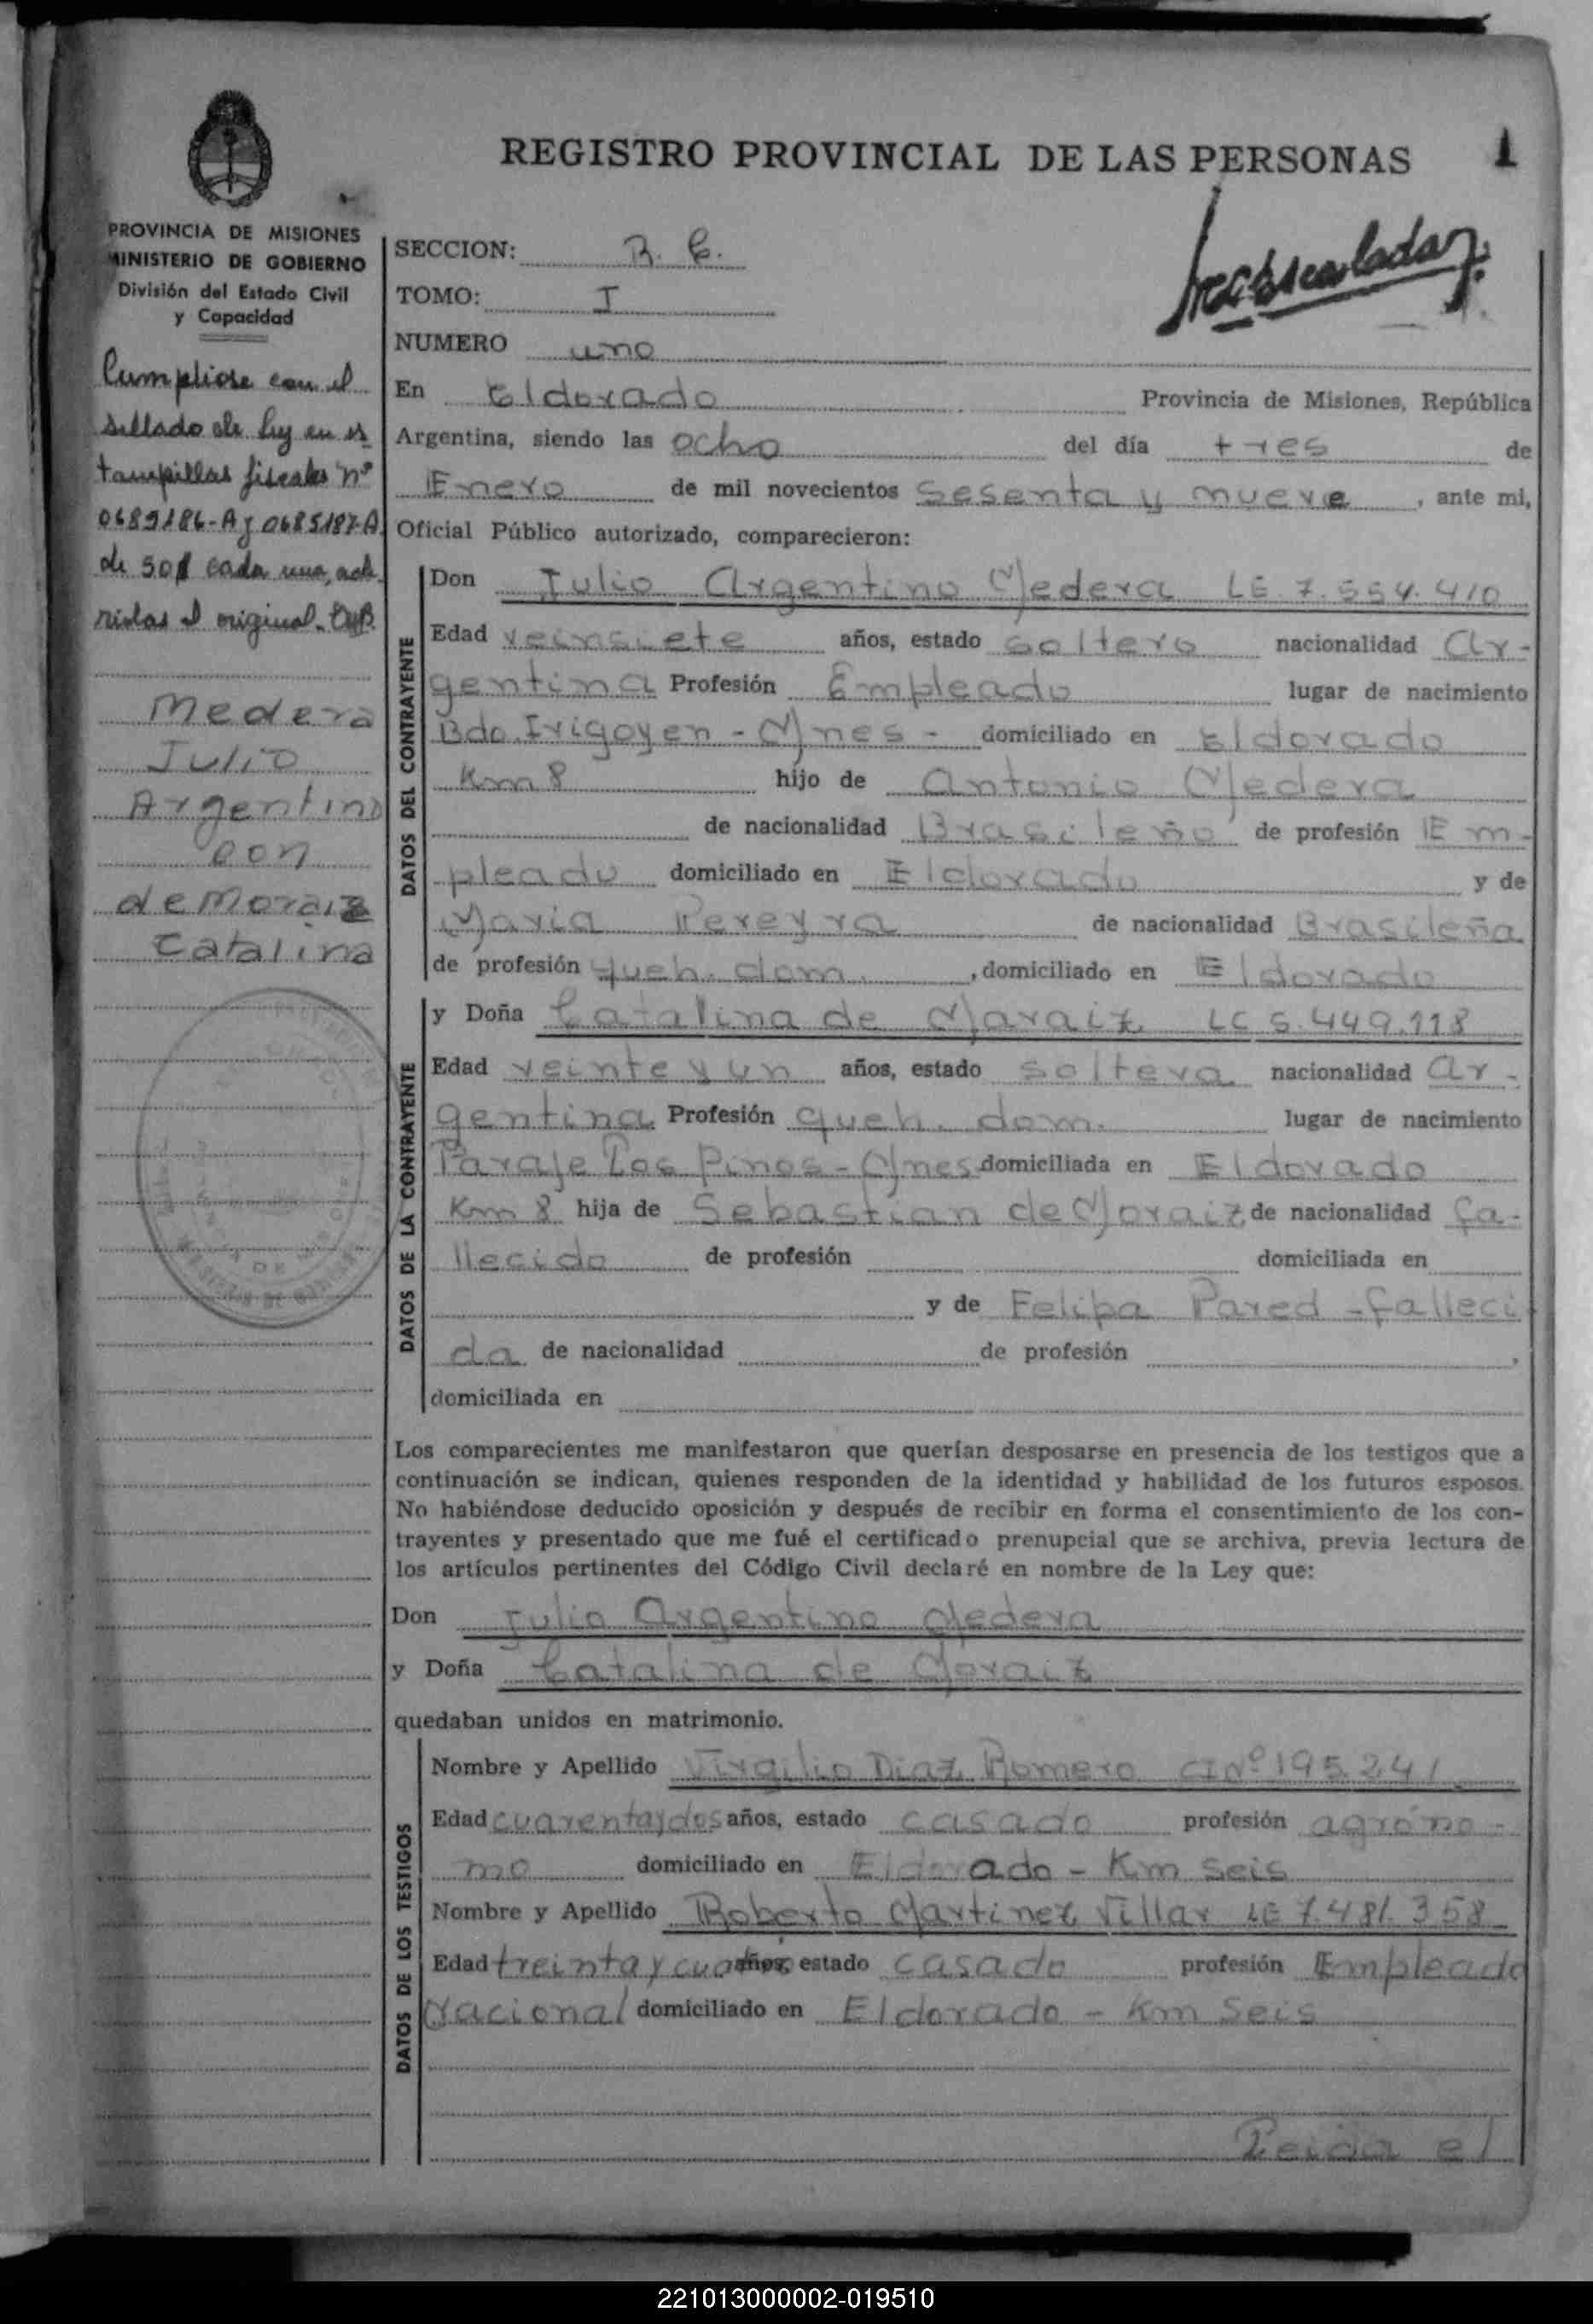 REGISTRO PROVINCIAL DE LAS PERSONAS
1
PROVINCIA DE MISIONES
MINISTERIO DE GOBIERNO
División del Estado Civil
y Capacidad
Cumpliose con el
sellado de ley en es
tampillas fiscales nº
0689186-A y 0685187-A
de 50$ cada una, adhe
ridas al original.
Medera
Julio
Argentino
con
de Moraiz
Catalina
SECCION: R. C.
TOMO: I
NUMERO uno
En Eldorado Provincia de Misiones, República
Argentina, siendo las ocho del día tres de
Enero de mil novecientos sesenta y nueve, ante mi,
Oficial Público autorizado, comparecieron:
DATOS DEL CONTRAYENTE
Don Julio Argentino Medera LE 7.554.410
Edad veinsiete años, estado soltero nacionalidad Ar-
gentina Profesión Empleado lugar de nacimiento
Bdo. Irigoyen - Mnes - domiciliado en Eldorado
Km 8 hijo de Antonio Medera
de nacionalidad Brasileño de profesión Em-
pleado domiciliado en Eldorado y de
Maria Pereyra de nacionalidad Brasileña
de profesión queh. dom., domiciliado en Eldorado
DATOS DE LA CONTRAYENTE
y Doña Catalina de Moraiz LC 5.449.118
Edad veinte y un años, estado soltera nacionalidad Ar-
gentina Profesión queh. dom. lugar de nacimiento
Paraje Los Pinos - Mnes domiciliada en Eldorado
Km 8 hija de Sebastian de Moraiz de nacionalidad fa-
llecido de profesión domiciliada en
y de Felipa Pared - falleci
da de nacionalidad de profesión ,
domiciliada en
Los comparecientes me manifestaron que querían desposarse en presencia de los testigos que a
continuación se indican, quienes responden de la identidad y habilidad de los futuros esposos.
No habiéndose deducido oposición y después de recibir en forma el consentimiento de los con-
trayentes y presentado que me fué el certificado prenupcial que se archiva, previa lectura de
los artículos pertinentes del Código Civil declaré en nombre de la Ley que:
Don Julio Argentino Medera
y Doña Catalina de Moraiz
quedaban unidos en matrimonio.
DATOS DE LOS TESTIGOS
Nombre y Apellido Virgilio Diaz Romero CI Nº 195.241
Edad cuarenta y dos años, estado casado profesión agróno-
mo domiciliado en Eldorado - Km Seis
Nombre y Apellido Roberto Martinez Villar LE 7.481.358
Edad treinta y cuatro años, estado casado profesión Empleado
Nacional domiciliado en Eldorado - Km Seis
Leida el
221013000002-019510